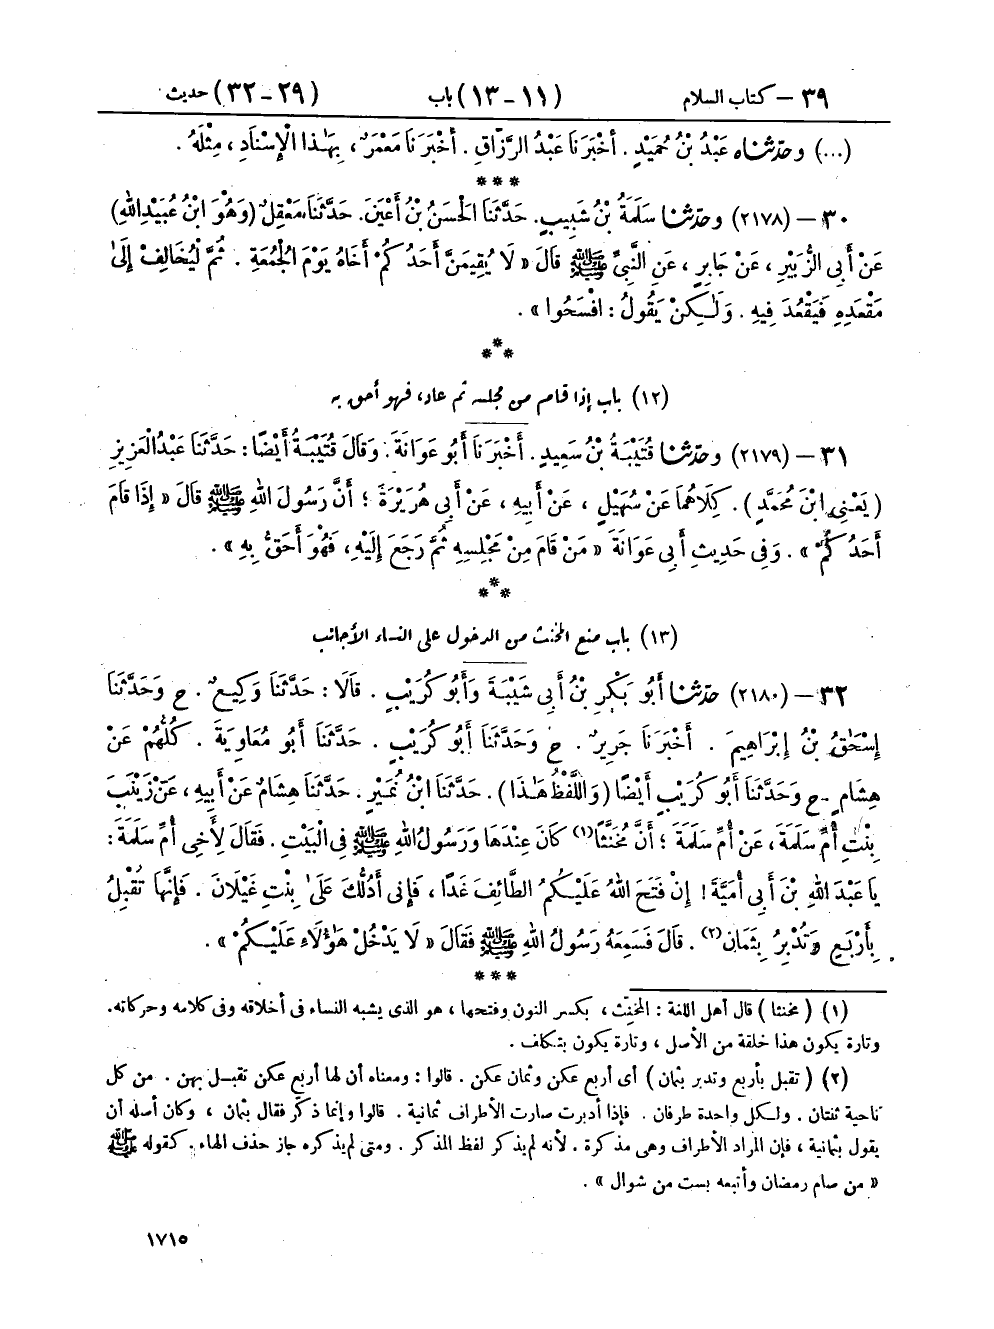 ٣٩ – كتاب السلام (١١ – ١٣) باب (٢٩ – ٣٢) حديث
(...) وحدّثناه عَبْدُ بْنُ حُمَيْدٍ . أَخْبَرَنَا عَبْدُ الرَّزَّاقِ . أَخْبَرَنَا مَعْمَرٌ ، بِهَٰذَا الْإِسْنَادِ ، مِثْلَهُ .
***
٣٠ – (٢١٧٨) وحدّثنا سَلَمَةُ بْنُ شَبِيبٍ. حَدَّثَنَا الْحَسَنُ بْنُ أَعْيَنَ. حَدَّثَنَا مَعْقِلٌ (وَهُوَ ابْنُ عُبَيْدِ اللهِ)
عَنْ أَبِي الزُّبَيْرِ ، عَنْ جَابِرٍ ، عَنِ النَّبِيِّ ﷺ قَالَ « لَا يُقِيمَنَّ أَحَدُكُمْ أَخَاهُ يَوْمَ الْجُمُعَةِ . ثُمَّ لْيُخَالِفْ إِلَىٰ
مَقْعَدِهِ فَيَقْعُدَ فِيهِ . وَلَٰكِنْ يَقُولُ : افْسَحُوا » .
***
(١٢) باب إذا قام من مجلسه ثم عاد، فهو أحق به
٣١ – (٢١٧٩) وحدّثنا قُتَيْبَةُ بْنُ سَعِيدٍ. أَخْبَرَنَا أَبُو عَوَانَةَ. وَقَالَ قُتَيْبَةُ أَيْضًا: حَدَّثَنَا عَبْدُ الْعَزِيزِ
(يَعْنِي ابْنَ مُحَمَّدٍ). كِلَاهُمَا عَنْ سُهَيْلٍ ، عَنْ أَبِيهِ ، عَنْ أَبِي هُرَيْرَةَ ؛ أَنَّ رَسُولَ اللهِ ﷺ قَالَ « إِذَا قَامَ
أَحَدُكُمْ » . وَفِي حَدِيثِ أَبِي عَوَانَةَ « مَنْ قَامَ مِنْ مَجْلِسِهِ ثُمَّ رَجَعَ إِلَيْهِ، فَهُوَ أَحَقُّ بِهِ » .
***
(١٣) باب منع المخنث من الدخول على النساء الأجانب
٣٢ – (٢١٨٠) حدّثنا أَبُو بَكْرِ بْنُ أَبِي شَيْبَةَ وَأَبُو كُرَيْبٍ . قَالَا : حَدَّثَنَا وَكِيعٌ . ح وَحَدَّثَنَا
إِسْحَٰقُ بْنُ إِبْرَاهِيمَ . أَخْبَرَنَا جَرِيرٌ . ح وَحَدَّثَنَا أَبُو كُرَيْبٍ . حَدَّثَنَا أَبُو مُعَاوِيَةَ . كُلُّهُمْ عَنْ
هِشَامٍ . ح وَحَدَّثَنَا أَبُو كُرَيْبٍ أَيْضًا (وَاللَّفْظُ هَٰذَا) . حَدَّثَنَا ابْنُ نُمَيْرٍ . حَدَّثَنَا هِشَامٌ عَنْ أَبِيهِ ، عَنْ زَيْنَبَ
بِنْتِ أُمِّ سَلَمَةَ ، عَنْ أُمِّ سَلَمَةَ ؛ أَنَّ مُخَنَّثًا(١) كَانَ عِنْدَهَا وَرَسُولُ اللهِ ﷺ فِي الْبَيْتِ . فَقَالَ لِأَخِي أُمِّ سَلَمَةَ :
يَا عَبْدَ اللهِ بْنَ أَبِي أُمَيَّةَ ! إِنْ فَتَحَ اللهُ عَلَيْكُمُ الطَّائِفَ غَدًا ، فَإِنِّي أَدُلُّكَ عَلَىٰ بِنْتِ غَيْلَانَ . فَإِنَّهَا تُقْبِلُ
بِأَرْبَعٍ وَتُدْبِرُ بِثَمَانٍ(٢) . قَالَ فَسَمِعَهُ رَسُولُ اللهِ ﷺ فَقَالَ « لَا يَدْخُلْ هَٰؤُلَاءِ عَلَيْكُمْ » .
***
(١) ( مخنثا ) قال أهل اللغة : المخنث ، بكسر النون وفتحها ، هو الذى يشبه النساء فى أخلاقه وفى كلامه وحركاته.
وتارة يكون هذا خلقة من الأصل ، وتارة يكون بتكلف .
(٢) ( تقبل بأربع وتدبر بثمان ) أى أربع عكن وثمان عكن . قالوا : ومعناه أن لها أربع عكن تقبـل بهن . من كل
ناحية ثنتان . ولكل واحدة طرفان . فإذا أدبرت صارت الأطراف ثمانية . قالوا وإنما ذكر فقال بثمان ، وكان أصله أن
يقول بثمانية ، فإن المراد الأطراف وهى مذكرة . لأنه لم يذكر لفظ المذكر . ومتى لم يذكره جاز حذف الهاء . كقوله ﷺ
« من صام رمضان وأتبعه بست من شوال » .
١٧١٥